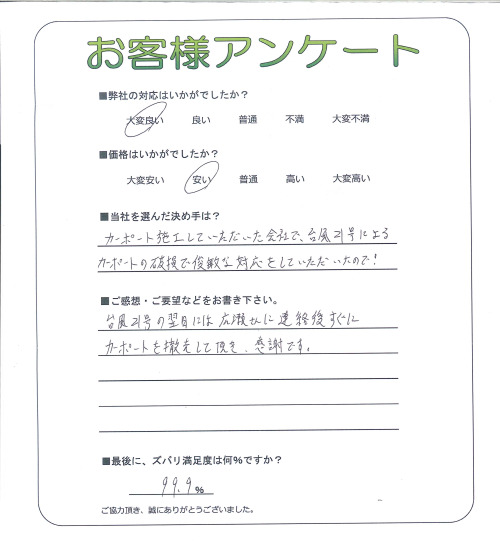 お客様アンケート
■弊社の対応はいかがでしたか？
大変良い 良い 普通 不満 大変不満
■価格はいかがでしたか？
大変安い 安い 普通 高い 大変高い
■当社を選んだ決め手は？
カーポート施工していただいた会社で、台風21号による
カーポートの破損で俊敏な対応をしていただいたので！
■ご感想・ご要望などをお書き下さい。
台風21号の翌日には広瀬さんに連絡後すぐに
カーポートを撤去して頂き、感謝です。
■最後に、ズバリ満足度は何％ですか？
99.9％
ご協力頂き、誠にありがとうございました。